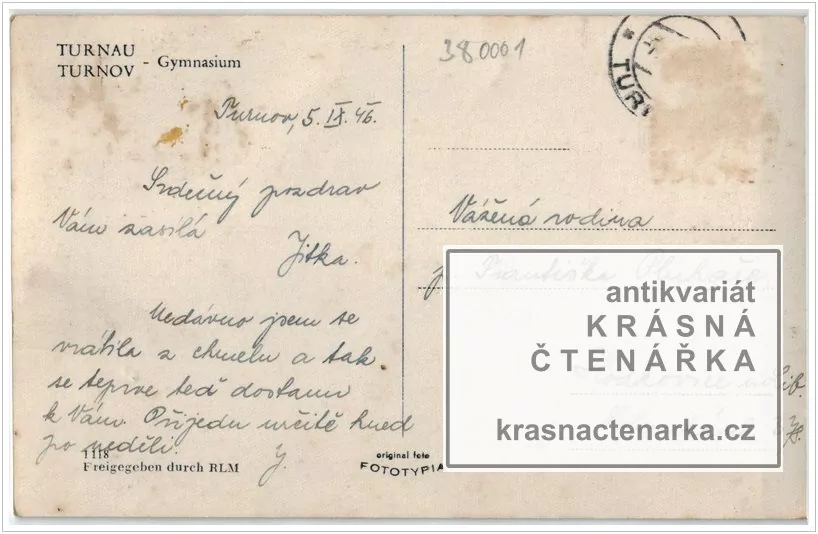 TURNAU
TURNOV - Gymnasium
380001
TUR
Turnov, 5. IX. 46.
Srdečný pozdrav
Vám zasílá
Jitka.
Nedávno jsem se
vrátila z chmelu a tak
se teprve teď dostanu
k Vám. Přijedu určitě hned
po neděli.
J.
1118
Freigegeben durch RLM
original foto
FOTOTYPIA
Vážená rodina
p. Františka
antikvariát
KRÁSNÁ
ČTENÁŘKA
krasnactenarka.cz